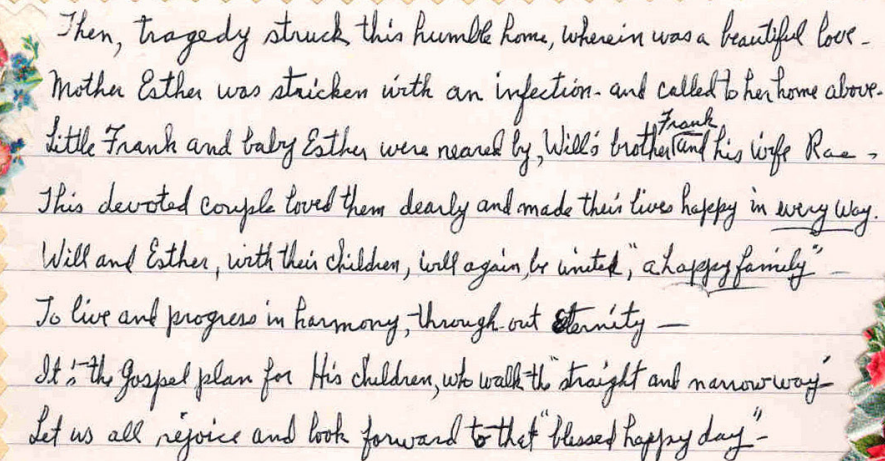 Then, tragedy struck this humble home, wherein was a beautiful love -
Mother Esther was stricken with an infection - and called to her home above.
Little Frank and baby Esther were neared by, Will's brother Frank and his wife Rae -
This devoted couple loved them dearly and made their lives happy in every way.
Will and Esther, with their children, will again, be united, "a happy family" -
To live and progress in harmony, through-out eternity -
It is the Gospel plan for His children, who walk the "straight and narrow way" -
Let us all rejoice and look forward to that "blessed happy day" -